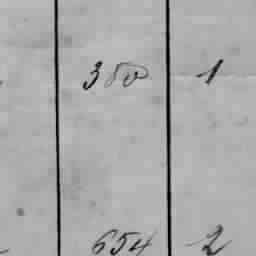 350 1
654 2